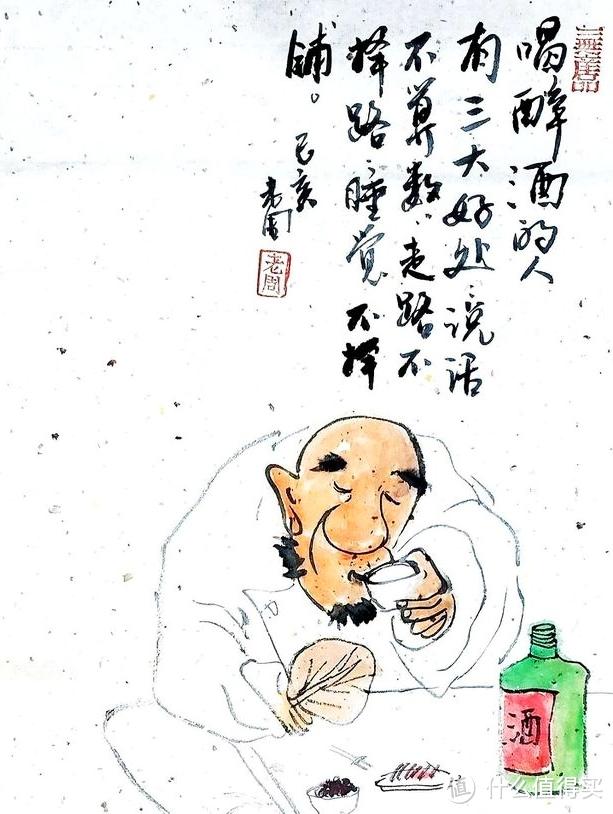 喝醉酒的人
有三大好处、说话
不算数、走路不
择路、睡觉不择
鋪。
己亥
老周
老周
酒
值 什么值得买